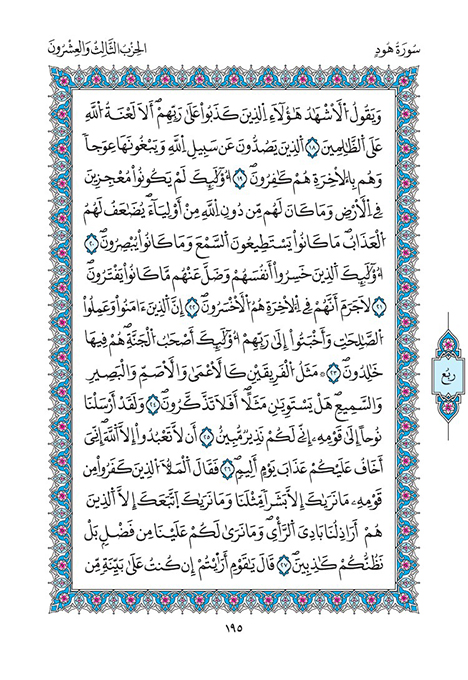 سُورَةُ هُودٍ
الحِزْبُ الثَّالِثُ وَالْعِشْرُونَ
وَيَقُولُ اُ۬لَاشْهَٰدُ هَٰٓؤُلَآءِ اِ۬لذِينَ كَذَبُواْ عَلَىٰ رَبِّهِمُۥٓۖ أَلَا لَعْنَةُ اُ۬للَّهِ
عَلَى اَ۬لظَّٰلِمِينَ ١٨ اَ۬لذِينَ يَصُدُّونَ عَن سَبِيلِ اِ۬للَّهِ وَيَبْغُونَهَا عِوَجاٗ
وَهُم بِالَاخِرَةِ هُمْ كَٰفِرُونَۖ ١٩ أُوْلَٰٓئِكَ لَمْ يَكُونُواْ مُعْجِزِينَ
فِے اِ۬لَارْضِ وَمَا كَانَ لَهُم مِّن دُونِ اِ۬للَّهِ مِنَ اَوْلِيَآءَۖ يُضَٰعَفُ لَهُمُ
اُ۬لْعَذَابُۖ مَا كَانُواْ يَسْتَطِيعُونَ اَ۬لسَّمْعَ وَمَا كَانُواْ يُبْصِرُونَۖ ٢٠
أُوْلَٰٓئِكَ اَ۬لذِينَ خَسِرُوٓاْ أَنفُسَهُمْ وَضَلَّ عَنْهُم مَّا كَانُواْ يَفْتَرُونَۖ
٢١ لَا جَرَمَ أَنَّهُمْ فِے اِ۬لَاخِرَةِ هُمُ اُ۬لَاخْسَرُونَۖ ٢٢ إِنَّ اَ۬لذِينَ ءَامَنُواْ وَعَمِلُواْ
اُ۬لصَّٰلِحَٰتِ وَأَخْبَتُوٓاْ إِلَىٰ رَبِّهِمُۥٓ أُوْلَٰٓئِكَ أَصْحَٰبُ اُ۬لْجَنَّةِ هُمْ فِيهَا
خَٰلِدُونَۖ ٢٣ ۞ مَثَلُ اُ۬لْفَرِيقَيْنِ كَالَاعْمَىٰ وَالَاصَمِّ وَالْبَصِيرِ
وَالسَّمِيعِۖ هَلْ يَسْتَوِيَٰنِ مَثَلاًۖ اَفَلَا تَذَّكَّرُونَۖ ٢٤ وَلَقَدَ اَرْسَلْنَا
نُوحاً اِلَىٰ قَوْمِهِۦٓ إِنِّے لَكُمْ نَذِيرٞ مُّبِينٌ ٢٥ اَن لَّا تَعْبُدُوٓاْ إِلَّا اَ۬للَّهَۖ إِنِّيَ
أَخَافُ عَلَيْكُمْ عَذَابَ يَوْمٍ اَلِيمٖۖ ٢٦ فَقَالَ اَ۬لْمَلَأُ اُ۬لذِينَ كَفَرُواْ مِن
قَوْمِهِۦ مَا نَر۪ىٰكَ إِلَّا بَشَراٗ مِّثْلَنَا وَمَا نَر۪ىٰكَ اَ۪تَّبَعَكَ إِلَّا اَ۬لذِينَ
هُمُۥٓ أَرَاذِلُنَا بَادِيَ اَ۬لرَّأْيِۖ وَمَا نَر۪ىٰ لَكُمْ عَلَيْنَا مِن فَضْلِۢۖ بَلْ
نَظُنُّكُمْ كَٰذِبِينَۖ ٢٧ قَالَ يَٰقَوْمِ أَرَٰٓيْتُمُۥٓ إِن كُنتُ عَلَىٰ بَيِّنَةٖ مِّن
ربع
١٩٥